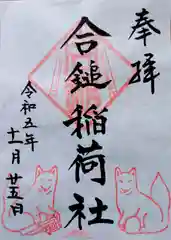 奉拝
合鎚稲荷社
令和五年
十一月廿五日